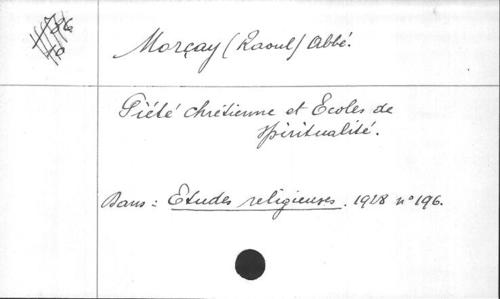 Morçay (Raoul) Abbé.
Piété chrétienne et Ecoles de
spiritualité.
Dans : Etudes religieuses. 1928 n° 196.